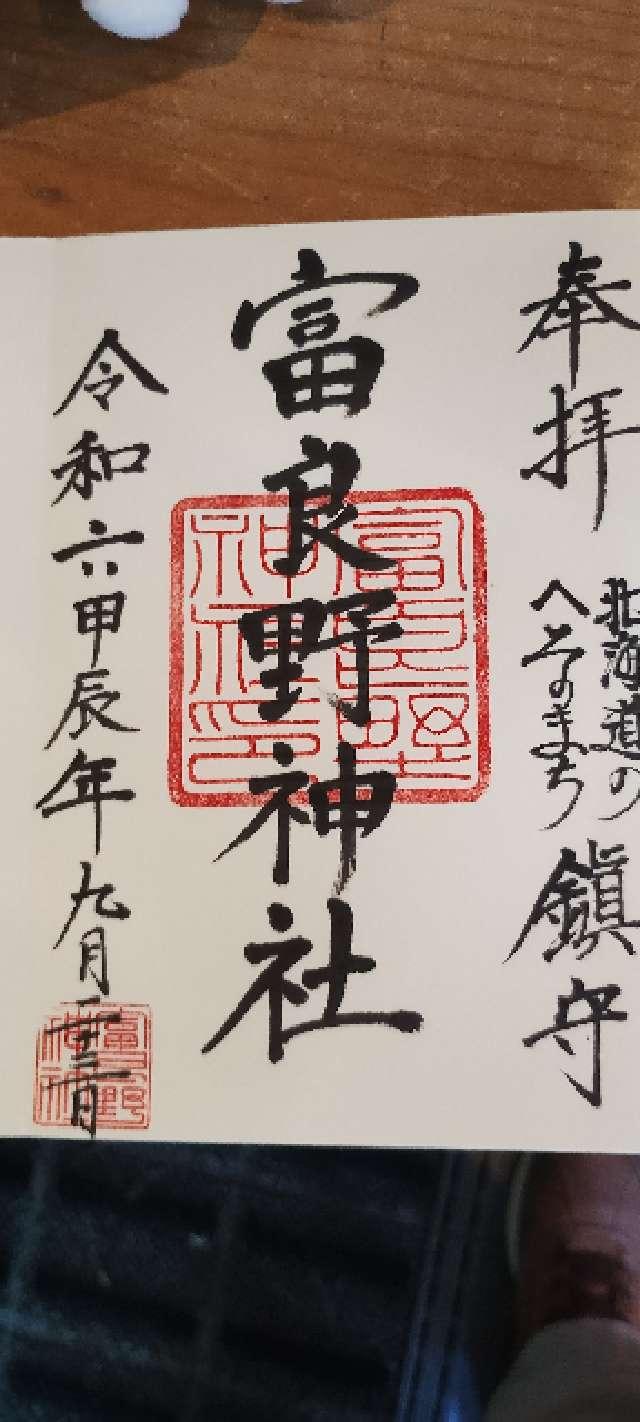 奉拝
北海道の
へそのまち
鎮守
富良野神社
富良野
神社印
令和六甲辰年九月二十三日
富良野
神社